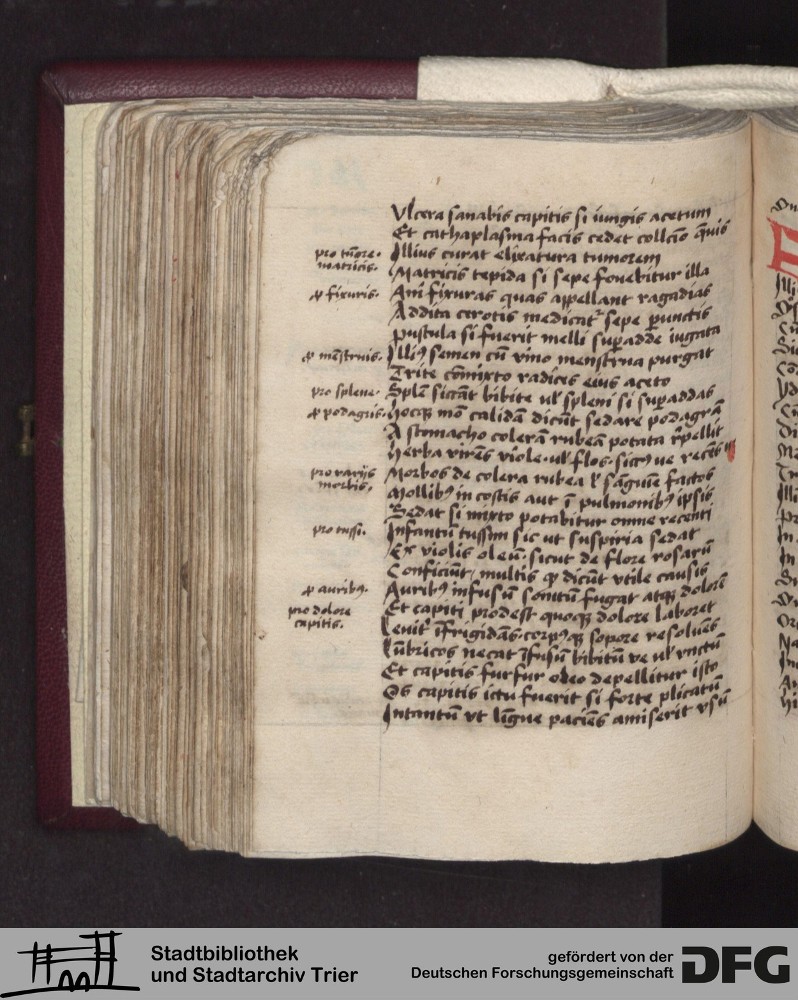 Ulcera sanabis capitis si iungis acetum
Et cathaplasma facis cedet collcio quis
pro tumore matricis.
Illius curat elixatura tumorem
Matricis tepida si sepe fouebitur illa
p fixuris.
Ani fixuras quas appellant ragadias
Addita cerotis medicat sepe punctis
Pustula si fuerit melli supadde iugata
p menstruis.
Illi9 semen cu vino menstrua purgat
Trite comixto radices eius aceto
pro splene.
Splen siccat bibite ul spleni si supaddas
p podagris.
hocq mo calida dicut sedare podagra
A stomacho colera rubea potata repellit
herba vires viole ul flos siccus ue reces
pro varijs morbis.
Morbos de colera rubea l sanguine factos
Mollib9 in costis aut i pulmonib9 ipsis
Sedat si mixto potabitur omne recenti
pro tussi.
Infantu tussim sic ut suspiria sedat
Ex violis oleu sicut de flore rosaru
Conficiunt multis q dicut utile causis
p aurib9.
Aurib9 infusu sonitu fugat atq dolore
pro dolore capitis.
Et capiti prodest quoq dolore laboret
Lenit ifrigidas corp9q sopore resolues
Lubricos necat ifusu bibitu ue ul unctu
Et capitis furfur oleo depellitur isto
Os capitis ictu fuerit si forte plicatu
Intantu ut ligue pacies amiserit usu
Stadtbibliothek
und Stadtarchiv Trier
gefördert von der
Deutschen Forschungsgemeinschaft
DFG